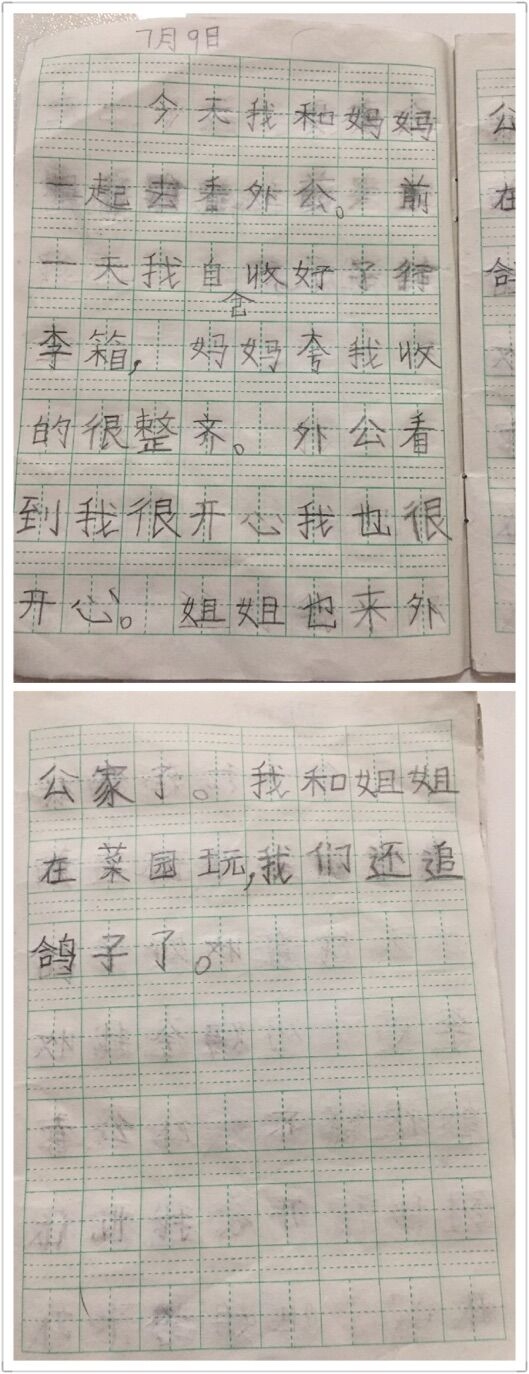 7月9日
今天我和妈妈
一起去看外公。前
一天我自收好了行
李箱,妈妈夸我收
的很整齐。外公看
到我很开心我也很
开心。姐姐也来外
公
在
公家了。我和姐姐
在菜园玩,我们还追
鸽子了。